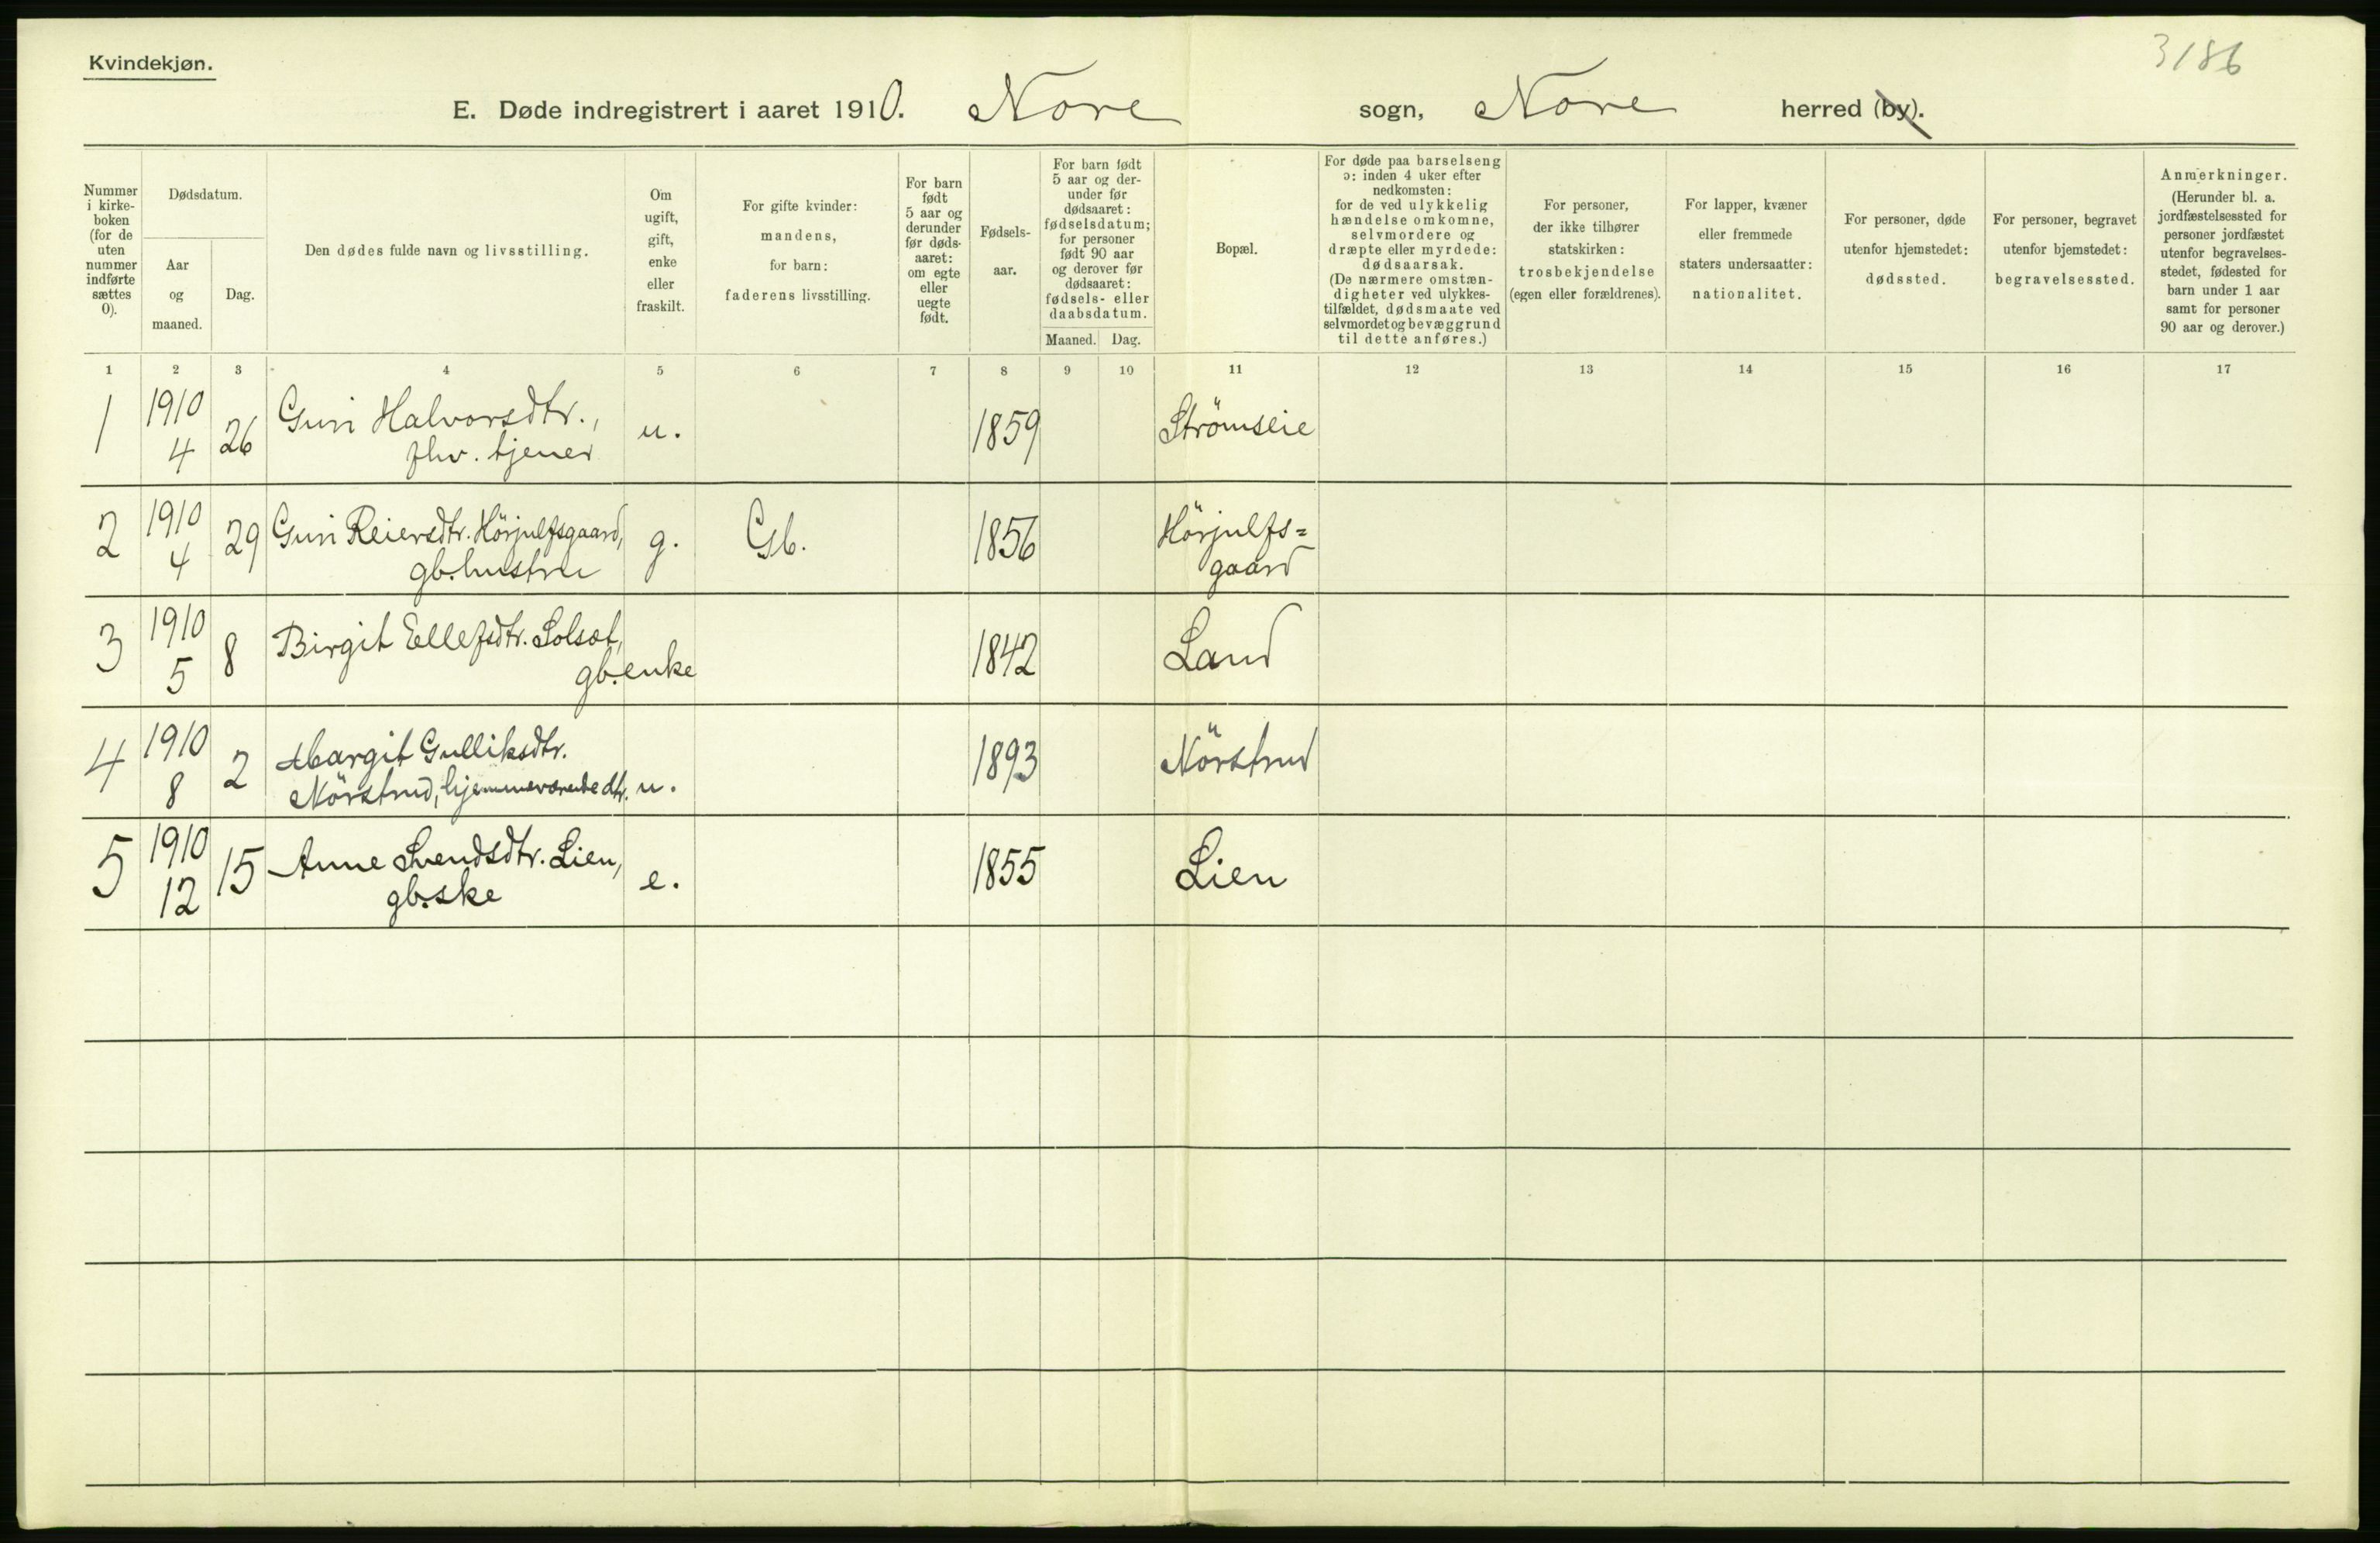 3186
Kvindekjøn.
E. Døde indregistrert i aaret 1910. Nore sogn, Nore herred (by).
Nummer
i kirke-
boken
(for de
uten
nummer
indførte
sættes
0).
Dødsdatum.
Aar
og
maaned.
Dag.
Den dødes fulde navn og livsstilling.
Om
ugift,
gift,
enke
eller
fraskilt.
For gifte kvinder:
mandens,
for barn:
faderens livsstilling.
For barn
født
5 aar og
derunder
før døds-
aaret:
om egte
eller
uegte
født.
Fødsels-
aar.
For barn født
5 aar og der-
under før
dødsaaret:
fødselsdatum;
for personer
født 90 aar
og derover før
dødsaaret:
fødsels- eller
daabsdatum.
Maaned. Dag.
Bopæl.
For døde paa barselseng
ɔ: inden 4 uker efter
nedkomsten:
for de ved ulykkelig
hændelse omkomne,
selvmordere og
dræpte eller myrdede:
dødsaarsak.
(De nærmere omstæn-
digheter ved ulykkes-
tilfældet, dødsmaate ved
selvmordet og bevæggrund
til dette anføres.)
For personer,
der ikke tilhører
statskirken:
trosbekjendelse
(egen eller forældrenes).
For lapper, kvæner
eller fremmede
staters undersaatter:
nationalitet.
For personer, døde
utenfor hjemstedet:
dødssted.
For personer, begravet
utenfor bjemstedet:
begravelsessted.
Anmerkninger.
(Herunder bl. a.
jordfæstelsessted for
personer jordfæstet
utenfor begravelses-
stedet, fødested for
barn under 1 aar
samt for personer
90 aar og derover.)
1 2 3 4 5 6 7 8 9 10 11 12 13 14 15 16 17
1 1910 4 26 Guri Halvorsdtr., u. 1859 Strömseie
fhv. tjener
2 1910 4 29 Guri Reiersdtr. Hörjulfsgaard, g. Gb. 1856 Hörjulfs=
gb.hustru gaard
3 1910 5 8 Birgit Ellefsdtr. Solsæt, 1842 Land
gb.enke
4 1910 8 2 Margit Gulliksdtr. 1893 Nörstrud
Nörstrud, hjemmeværende dtr. u.
5 1910 12 15 Anne Svendsdtr. Lien, e. 1855 Lien
gb.ske